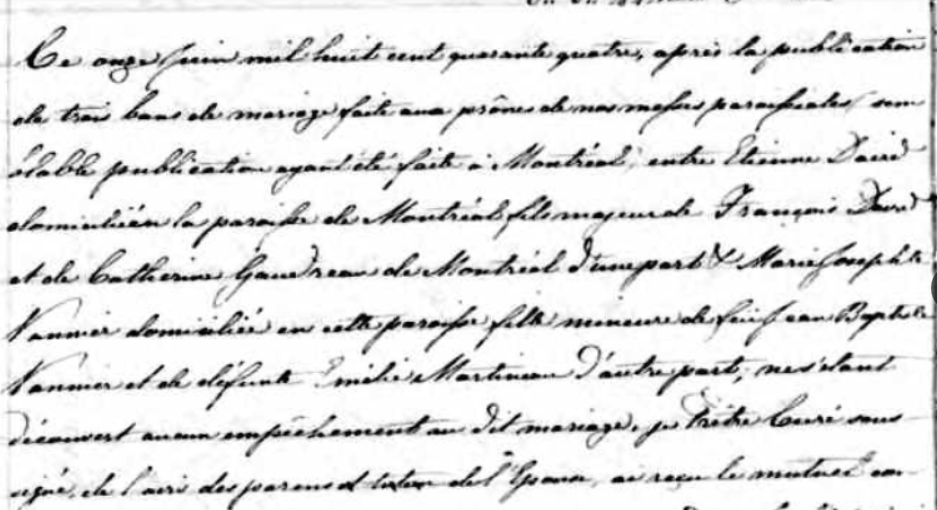 Le onze juin mil huit cent quarante quatre, après la publication
de trois bans de mariage faite aux prônes de nos messes paroissiales, sem
blable publication ayant été faite à Montréal, entre Etienne David
domicilié en la paroisse de Montréal fils majeur de François David
et de Catherine Gaudreau de Montréal d'une part & Marie Josephte
Vannier domiciliée en cette paroisse fille mineure de feu Jean Baptiste
Vannier et de défunte Emélie Martineau d'autre part; ne s'étant
découvert aucun empêchement au dit mariage, je Prêtre Curé sous
signé, de l'avis des parens et tuteur de l'Epouse, ai reçu le mutuel con